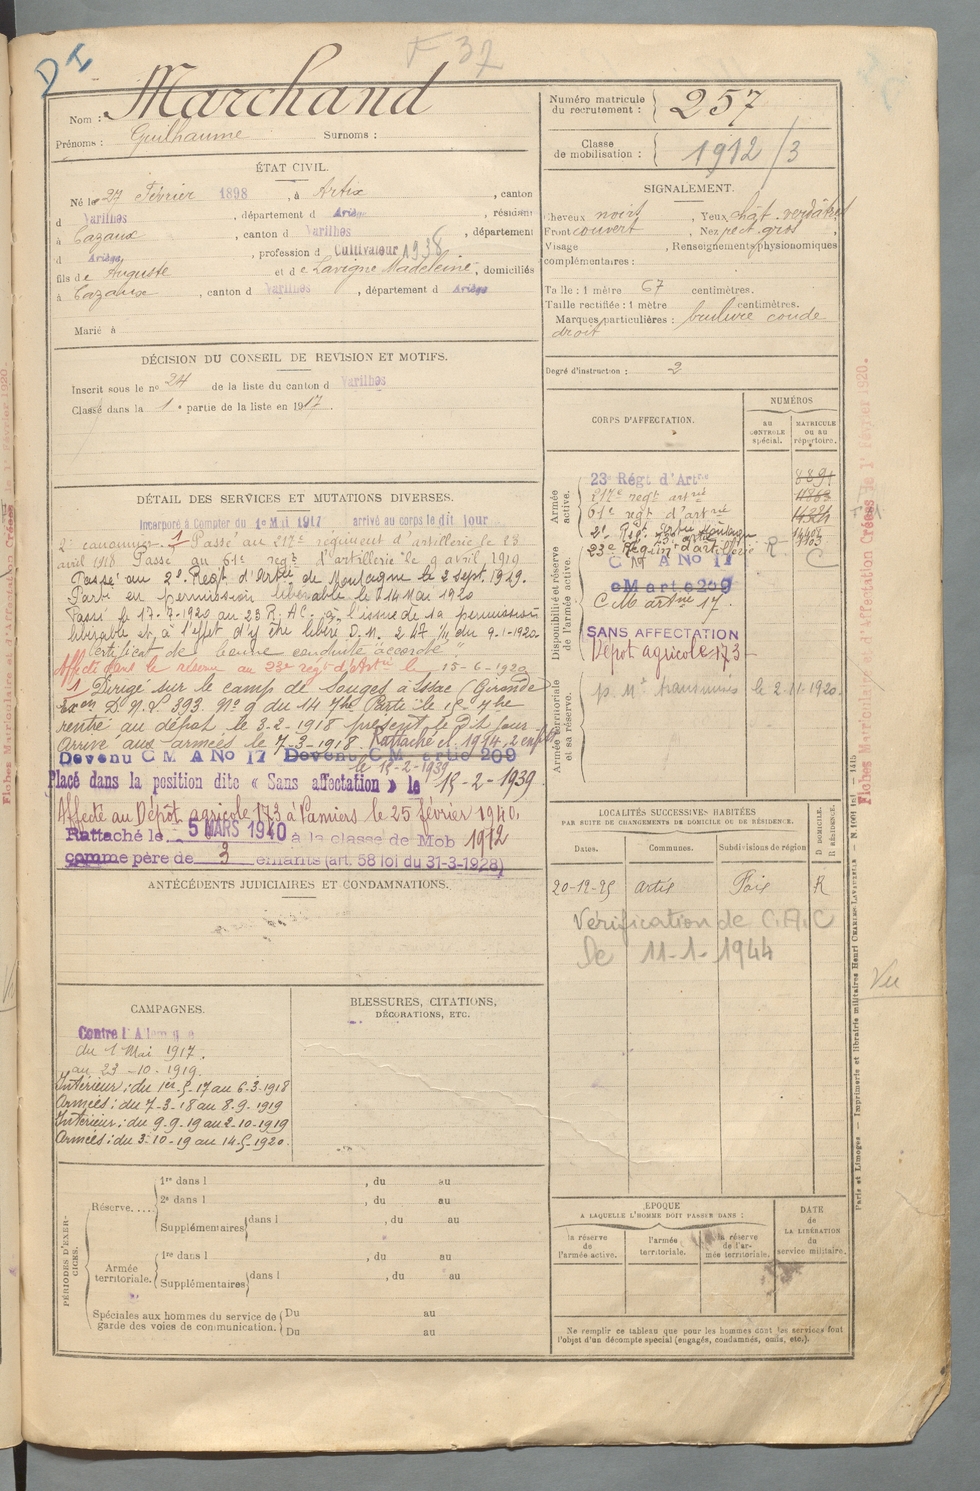 D I
F 37
Nom : Marchand
Prénoms : Guilhaume Surnoms :
ÉTAT CIVIL.
Né le 27 Février 1898, à Artix, canton
d Varilhes, département d Ariège, résidant
à Cazaux, canton d Varilhes, département
d Ariège, profession d Cultivateur 1938
fils de Auguste et de Lavigne Madeleine, domiciliés
à Cazaux, canton d Varilhes, département d Ariège
Marié à
DÉCISION DU CONSEIL DE REVISION ET MOTIFS.
Inscrit sous le n° 24 de la liste du canton d Varilhes
Classé dans la 1e partie de la liste en 1917.
DÉTAIL DES SERVICES ET MUTATIONS DIVERSES.
Incorporé à Compter du 1er Mai 1917 arrivé au corps le dit jour
2e canonnier. 1 Passé au 217e régiment d'artillerie le 23
avril 1918 Passé au 61e regt d'artillerie le 9 avril 1919
Passé au 2e Regt d'Artie de Montagne le 2 Sept. 1919.
Parti en permission libérable le 14 Mai 1920
Passé le 17-7-1920 au 23 R.A.C. à l'issue de sa permission
libérable et à l'effet d'y être libéré D.M. 247 /1 du 9-1-1920
Certificat de bonne conduite "accordé"
Affecté dans la réserve au 23e regt d'artie le 15-6-1920
1 Dirigé sur le camp de Souges à Issac (Gironde)
N° 9 du 14 7bre Parti le 15-7bre
rentré au dépôt le 3-2-1918 présent le dit jour
Arrivé aux armées le 7-3-1918. Rattaché cl. 1914, 2 enfts
le 15-2-1939
Devenu C M A No 17 Devenu C M artie 209
Placé dans la position dite « Sans affectation » le 15-2-1939
Affecté au Dépôt agricole 173 à Pamiers le 25 février 1940.
Rattaché le 5 MARS 1940 à la classe de Mob 1912
comme père de 3 enfants (art. 58 loi du 31-3-1928)
ANTÉCÉDENTS JUDICIAIRES ET CONDAMNATIONS.
CAMPAGNES.
Contre l'Allemagne
du 1 Mai 1917.
au 23-10-1919.
Intérieur : du 1er-5-17 au 6-3-1918
Armées : du 7-3-18 au 8-9-1919
Intérieur : du 9-9-19 au 2-10-1919
Armées : du 3-10-19 au 14-5-1920.
BLESSURES, CITATIONS,
DÉCORATIONS, ETC.
PÉRIODES D'EXERCICES.
Réserve.....
1re dans l , du au
2e dans l , du au
Supplémentaires dans l , du au
Armée territoriale.
1re dans l , du au
Supplémentaires dans l , du au
Spéciales aux hommes du service de
garde des voies de communication.
Du au
Du au
Numéro matricule
du recrutement : 257
Classe
de mobilisation : 1912/3
SIGNALEMENT.
Cheveux noirs, Yeux chât. verdâtres
Front couvert, Nez rect. gros
Visage , Renseignements physionomiques
complémentaires :
Taille : 1 mètre 67 centimètres.
Taille rectifiée : 1 mètre centimètres.
Marques particulières : brulure coude
droit
Degré d'instruction : 2
CORPS D'AFFECTATION.
NUMÉROS
AU
CONTROLE
spécial.
MATRICULE
OU AU
répertoire.
Armée
active.
23e Régt d'Artie
217e regt artie
61e regt d'artie
2e Reg. Artie Montagne
Disponibilité et réserve
de l'armée active.
23e Régim. d'artillerie R C
C M A No 17
C M artie 209
C M artie 17.
SANS AFFECTATION
Dépôt agricole 173
Armée territoriale
et sa réserve.
p. Me transmis le 2-11-1920.
LOCALITÉS SUCCESSIVES HABITÉES
PAR SUITE DE CHANGEMENTS DE DOMICILE OU DE RÉSIDENCE.
Dates. Communes. Subdivisions de région
D DOMICILE.
R RÉSIDENCE.
20-12-25 Artix Foix R
Vérification de C.A.C
De 11-1-1944
ÉPOQUE
A LAQUELLE L'HOMME DOIT PASSER DANS :
la réserve
de
l'armée active.
l'armée
territoriale.
la réserve
de l'ar-
mée territoriale.
DATE
de
LA LIBÉRATION
du
service militaire.
Ne remplir ce tableau que pour les hommes dont les services font
l'objet d'un décompte spécial (engagés, condamnés, omis, etc.).
Fiches Matriculaire et d'Affectation Créées le 1er Février 1920.
Vu
Paris et Limoges. — Imprimerie et librairie militaires Henri CHARLES-LAVAUZELLE